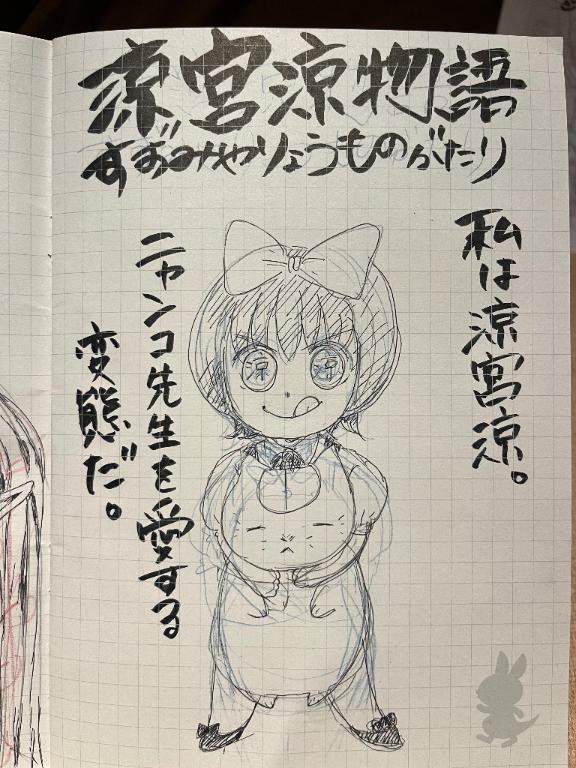 涼宮涼物語
すずみやりょうものがたり
私は涼宮涼。
ニャンコ先生を愛する
変態だ。